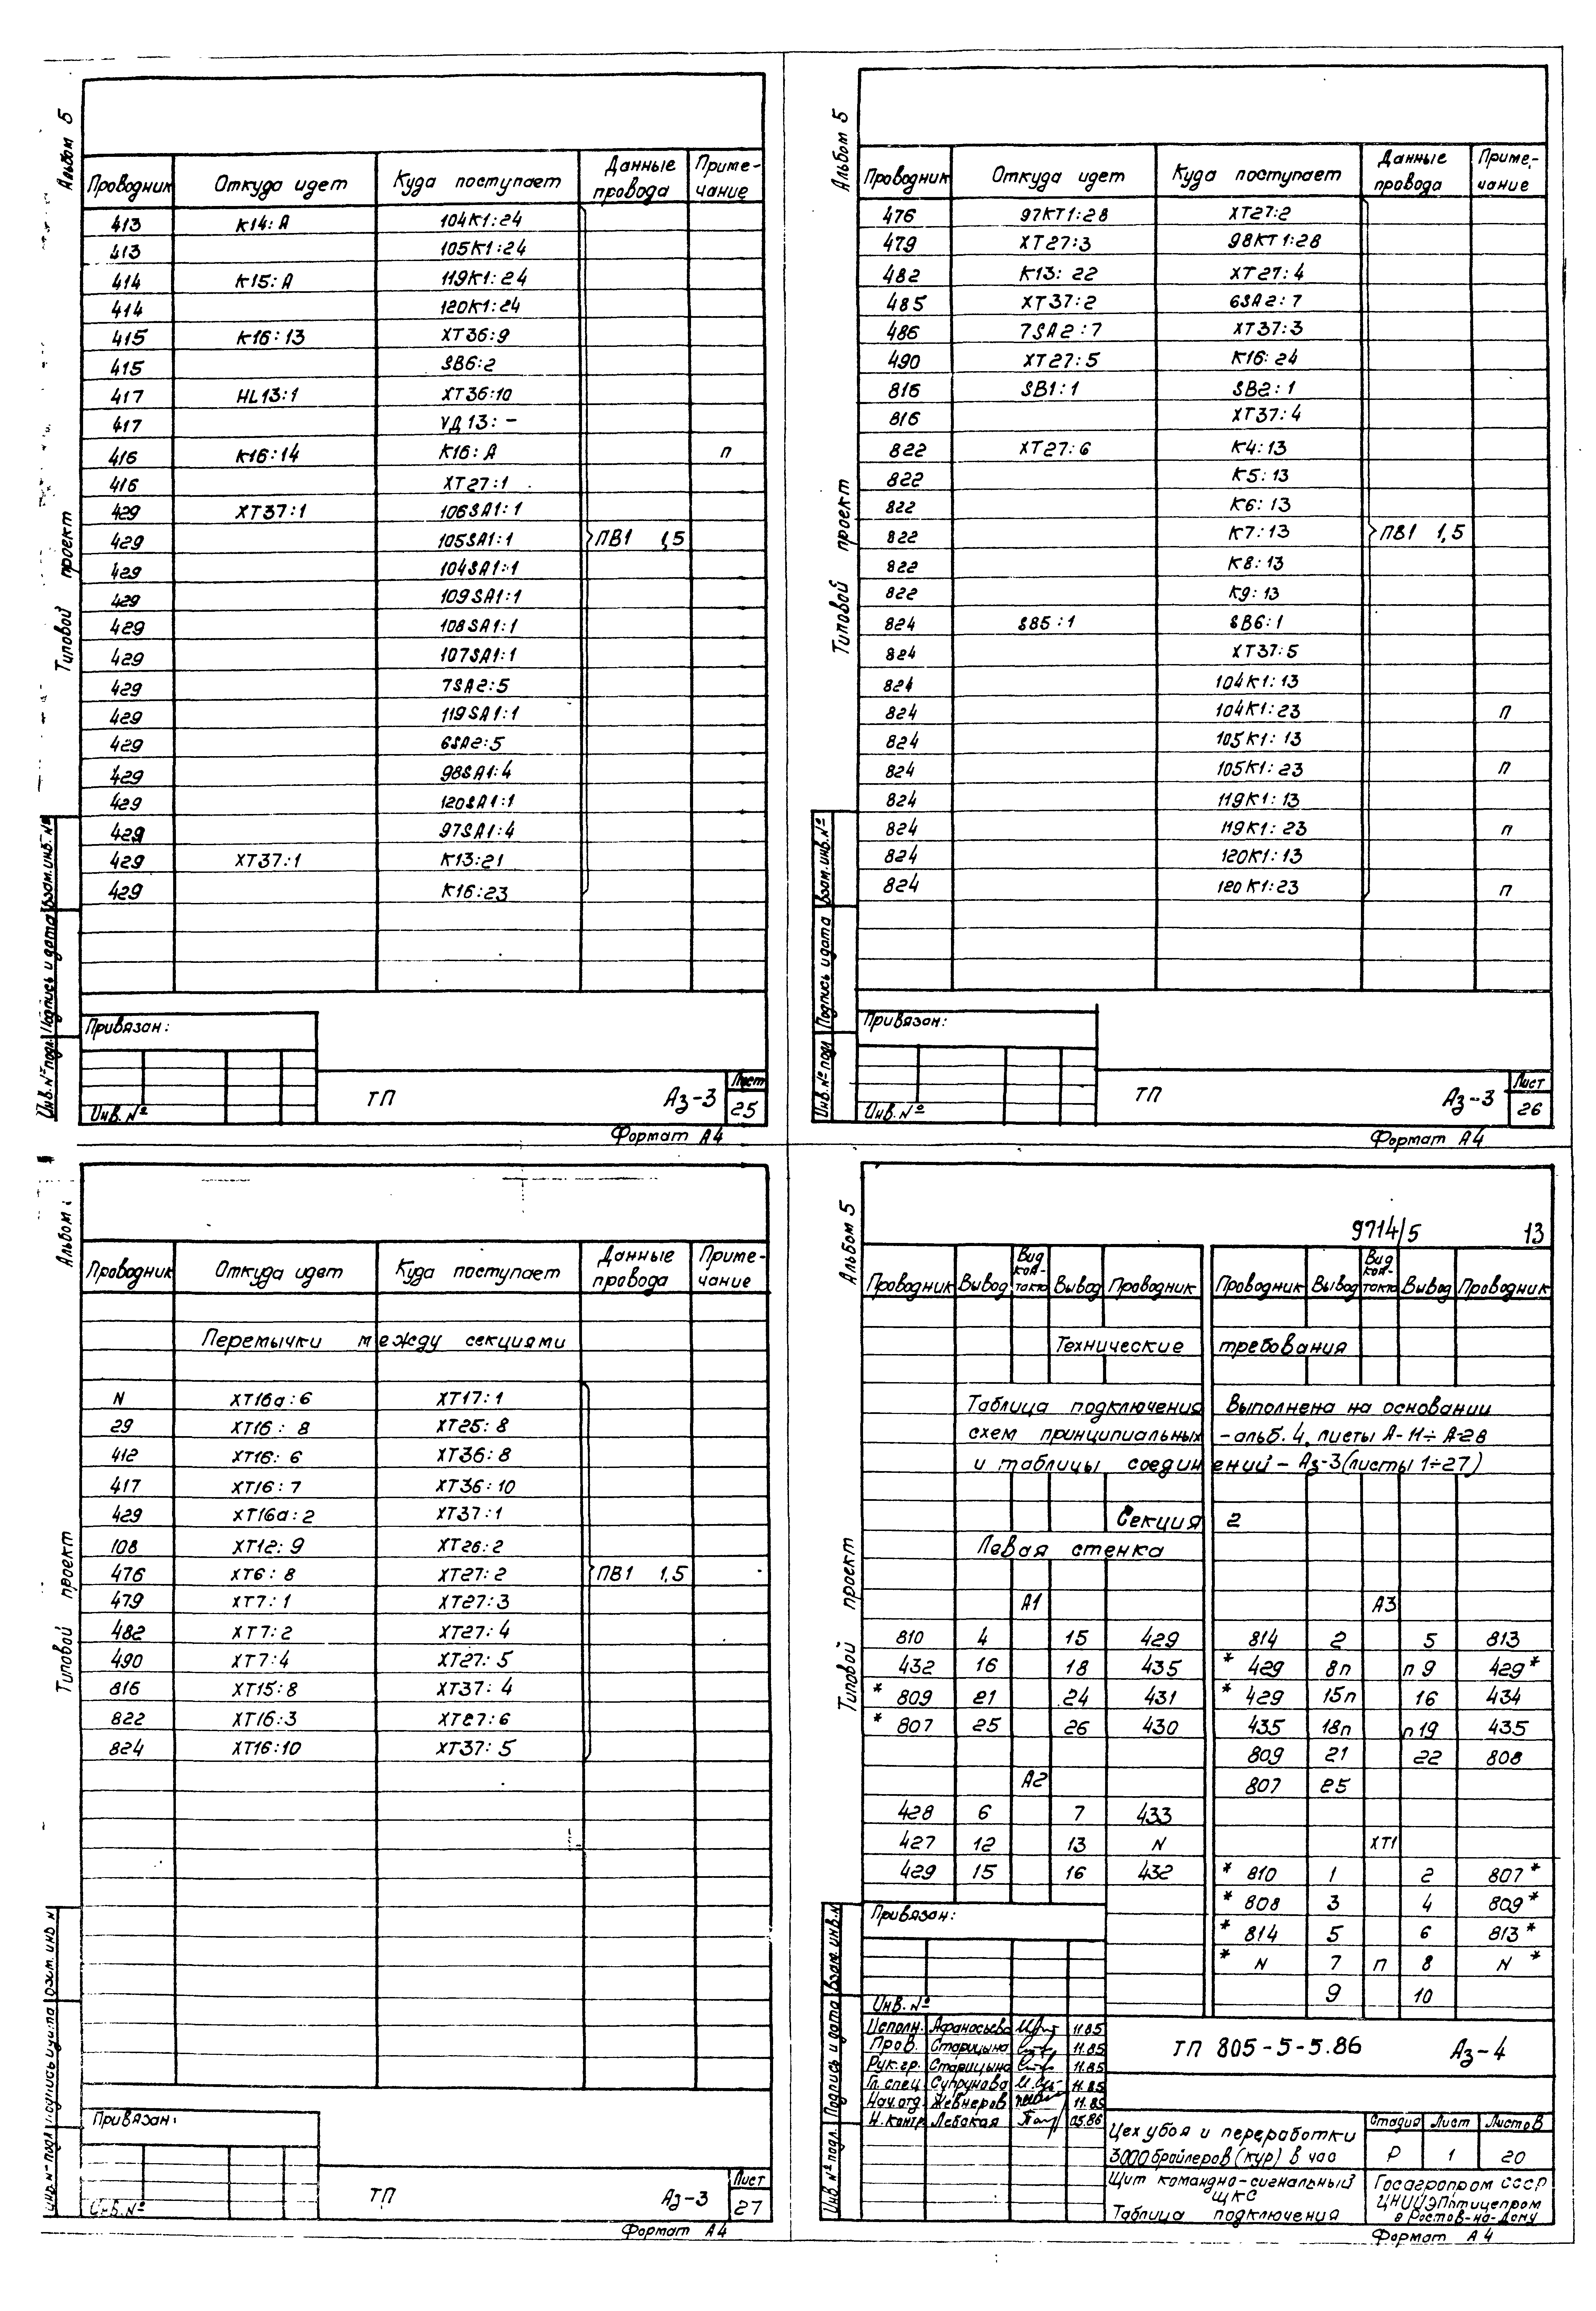 Альбом 5
Типовой проект
Проводник Откуда идет Куда поступает Данные провода Приме-чание
413 К14:А 104К1:24
413 105К1:24
414 К15:А 119К1:24
414 120К1:24
415 К16:13 ХТ36:9
415 SB6:2
417 HL13:1 ХТ36:10
417 УД13:-
416 К16:14 К16:А п
416 ХТ27:1
429 ХТ37:1 106SA1:1
429 105SA1:1 ПВ1 1,5
429 104SA1:1
429 109SA1:1
429 108SA1:1
429 107SA1:1
429 7SA2:5
429 119SA1:1
429 6SA2:5
429 98SA1:4
429 120SA1:1
429 97SA1:4
429 ХТ37:1 К13:21
429 К16:23
Инв.№ подл. Подпись и дата Взам.инв.№
Привязан:
Инв.№
ТП Аз-3 Лист 25
Формат А4
Альбом 5
Типовой проект
Проводник Откуда идет Куда поступает Данные провода Приме-чание
476 97КТ1:28 ХТ27:2
479 ХТ27:3 98КТ1:28
482 К13:22 ХТ27:4
485 ХТ37:2 6SA2:7
486 7SA2:7 ХТ37:3
490 ХТ27:5 К16:24
816 SB1:1 SB2:1
816 ХТ37:4
822 ХТ27:6 К4:13
822 К5:13
822 К6:13
822 К7:13 ПВ1 1,5
822 К8:13
822 К9:13
824 SB5:1 SB6:1
824 ХТ37:5
824 104К1:13
824 104К1:23 п
824 105К1:13
824 105К1:23 п
824 119К1:13
824 119К1:23 п
824 120К1:13
824 120К1:23 п
Инв.№ подл Подпись и дата Взам.инв.№
Привязан:
Инв.№
ТП Аз-3 Лист 26
Формат А4
Альбом
Типовой проект
Проводник Откуда идет Куда поступает Данные провода Приме-чание
Перемычки между секциями
N ХТ16а:6 ХТ17:1
29 ХТ16:8 ХТ25:8
412 ХТ16:6 ХТ36:8
417 ХТ16:7 ХТ36:10
429 ХТ16а:2 ХТ37:1
108 ХТ12:9 ХТ26:2
476 ХТ6:8 ХТ27:2 ПВ1 1,5
479 ХТ7:1 ХТ27:3
482 ХТ7:2 ХТ27:4
490 ХТ7:4 ХТ27:5
816 ХТ15:8 ХТ37:4
822 ХТ16:3 ХТ27:6
824 ХТ16:10 ХТ37:5
Привязан:
Инв.№
ТП Аз-3 Лист 27
Формат А4
Альбом 5
Типовой проект
9714/5 13
Проводник Вывод Вид кон-такта Вывод Проводник Проводник Вывод Вид кон-такта Вывод Проводник
Технические требования
Таблица подключения Выполнена на основании
схем принципиальных - альб. 4, листы А-11÷А-28
и таблицы соединений - Аз-3 (листы 1÷27)
Секция 2
Левая стенка
А1 А3
810 4 15 429 814 2 5 813
432 16 18 435 * 429 8п п9 429 *
* 809 21 24 431 * 429 15п 16 434
* 807 25 26 430 435 18п п19 435
809 21 22 808
А2 807 25
428 6 7 433
427 12 13 N ХТ1
429 15 16 432 * 810 1 2 807 *
* 808 3 4 809 *
* 814 5 6 813 *
* N 7 п 8 N *
9 10
Инв.№ подл. Подпись и дата Взам. инв.N
Привязан:
Инв.№
Исполн. Афанасьева 11.85
Пров. Старицына 11.85
Рук.гр. Старицына 11.85
Гл.спец Супрунова 11.85
Нач.отд Жевнеров 11.85
Н.контр Лебакая 05.86
ТП 805-5-5.86 Аз-4
Цех убоя и переработки 3000 бройлеров (кур) в час
Стадия Лист Листов
Р 1 20
Щит командно-сигнальный ЩКС
Таблица подключения
Госагропром СССР
ЦНИИЭПптицепром
в Ростов-на-Дону
Формат А4